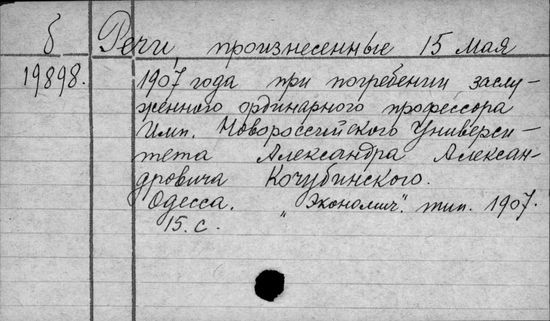 б Речи, произнесенные 15 мая
19898. 1907 года при погребении заслу-
женного ординарного профессора
Имп. Новороссийского Универси-
тета Александра Алексан-
дровича Кочубинского.
Одесса. „Экономич". тип. 1907.
15. с.